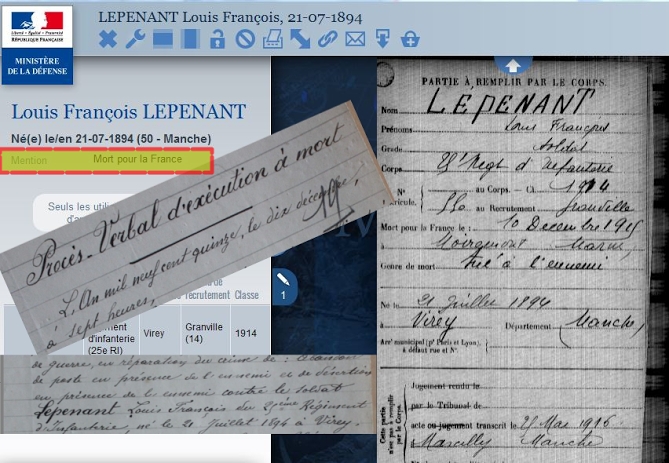 LEPENANT Louis François, 21-07-1894
Liberté • Égalité • Fraternité
RÉPUBLIQUE FRANÇAISE
MINISTÈRE
DE LA DÉFENSE
Louis François LEPENANT
Né(e) le/en 21-07-1894 (50 - Manche)
Mention Mort pour la France
Seuls les utilis
d'a
Procès-Verbal d'exécution à mort
L'An mil neuf cent quinze, le dix décembre,
à sept heures,
recrutement Classe
d'infanterie
(25e RI)
Virey
Granville
(14)
1914
1
de guerre, en réparation du crime de :
de poste en présence de l'ennemi et de désertion
en présence de l'ennemi contre le soldat
Lepenant Louis François du 25ème Régiment
d'Infanterie, né le 21 Juillet 1894 à Virey.
PARTIE À REMPLIR PAR LE CORPS.
Nom LÉPENANT
Prénoms Louis François
Grade Soldat
Corps 25e Regt d'Infanterie
N° au Corps. — Cl. 1914
Matricule. au Recrutement Granville
Mort pour la France le 10 Décembre 1915
à Marne
Genre de mort tué à l'ennemi
Né le 21 Juillet 1894
à Virey Département Manche
Arr' municipal (pr Paris et Lyon),
à défaut rue et N°.
Cette partie
n'est pas à remplir
par le Corps.
Jugement rendu le
par le Tribunal de
acte ou jugement transcrit le 25 Mai 1916
à Marcilly Manche